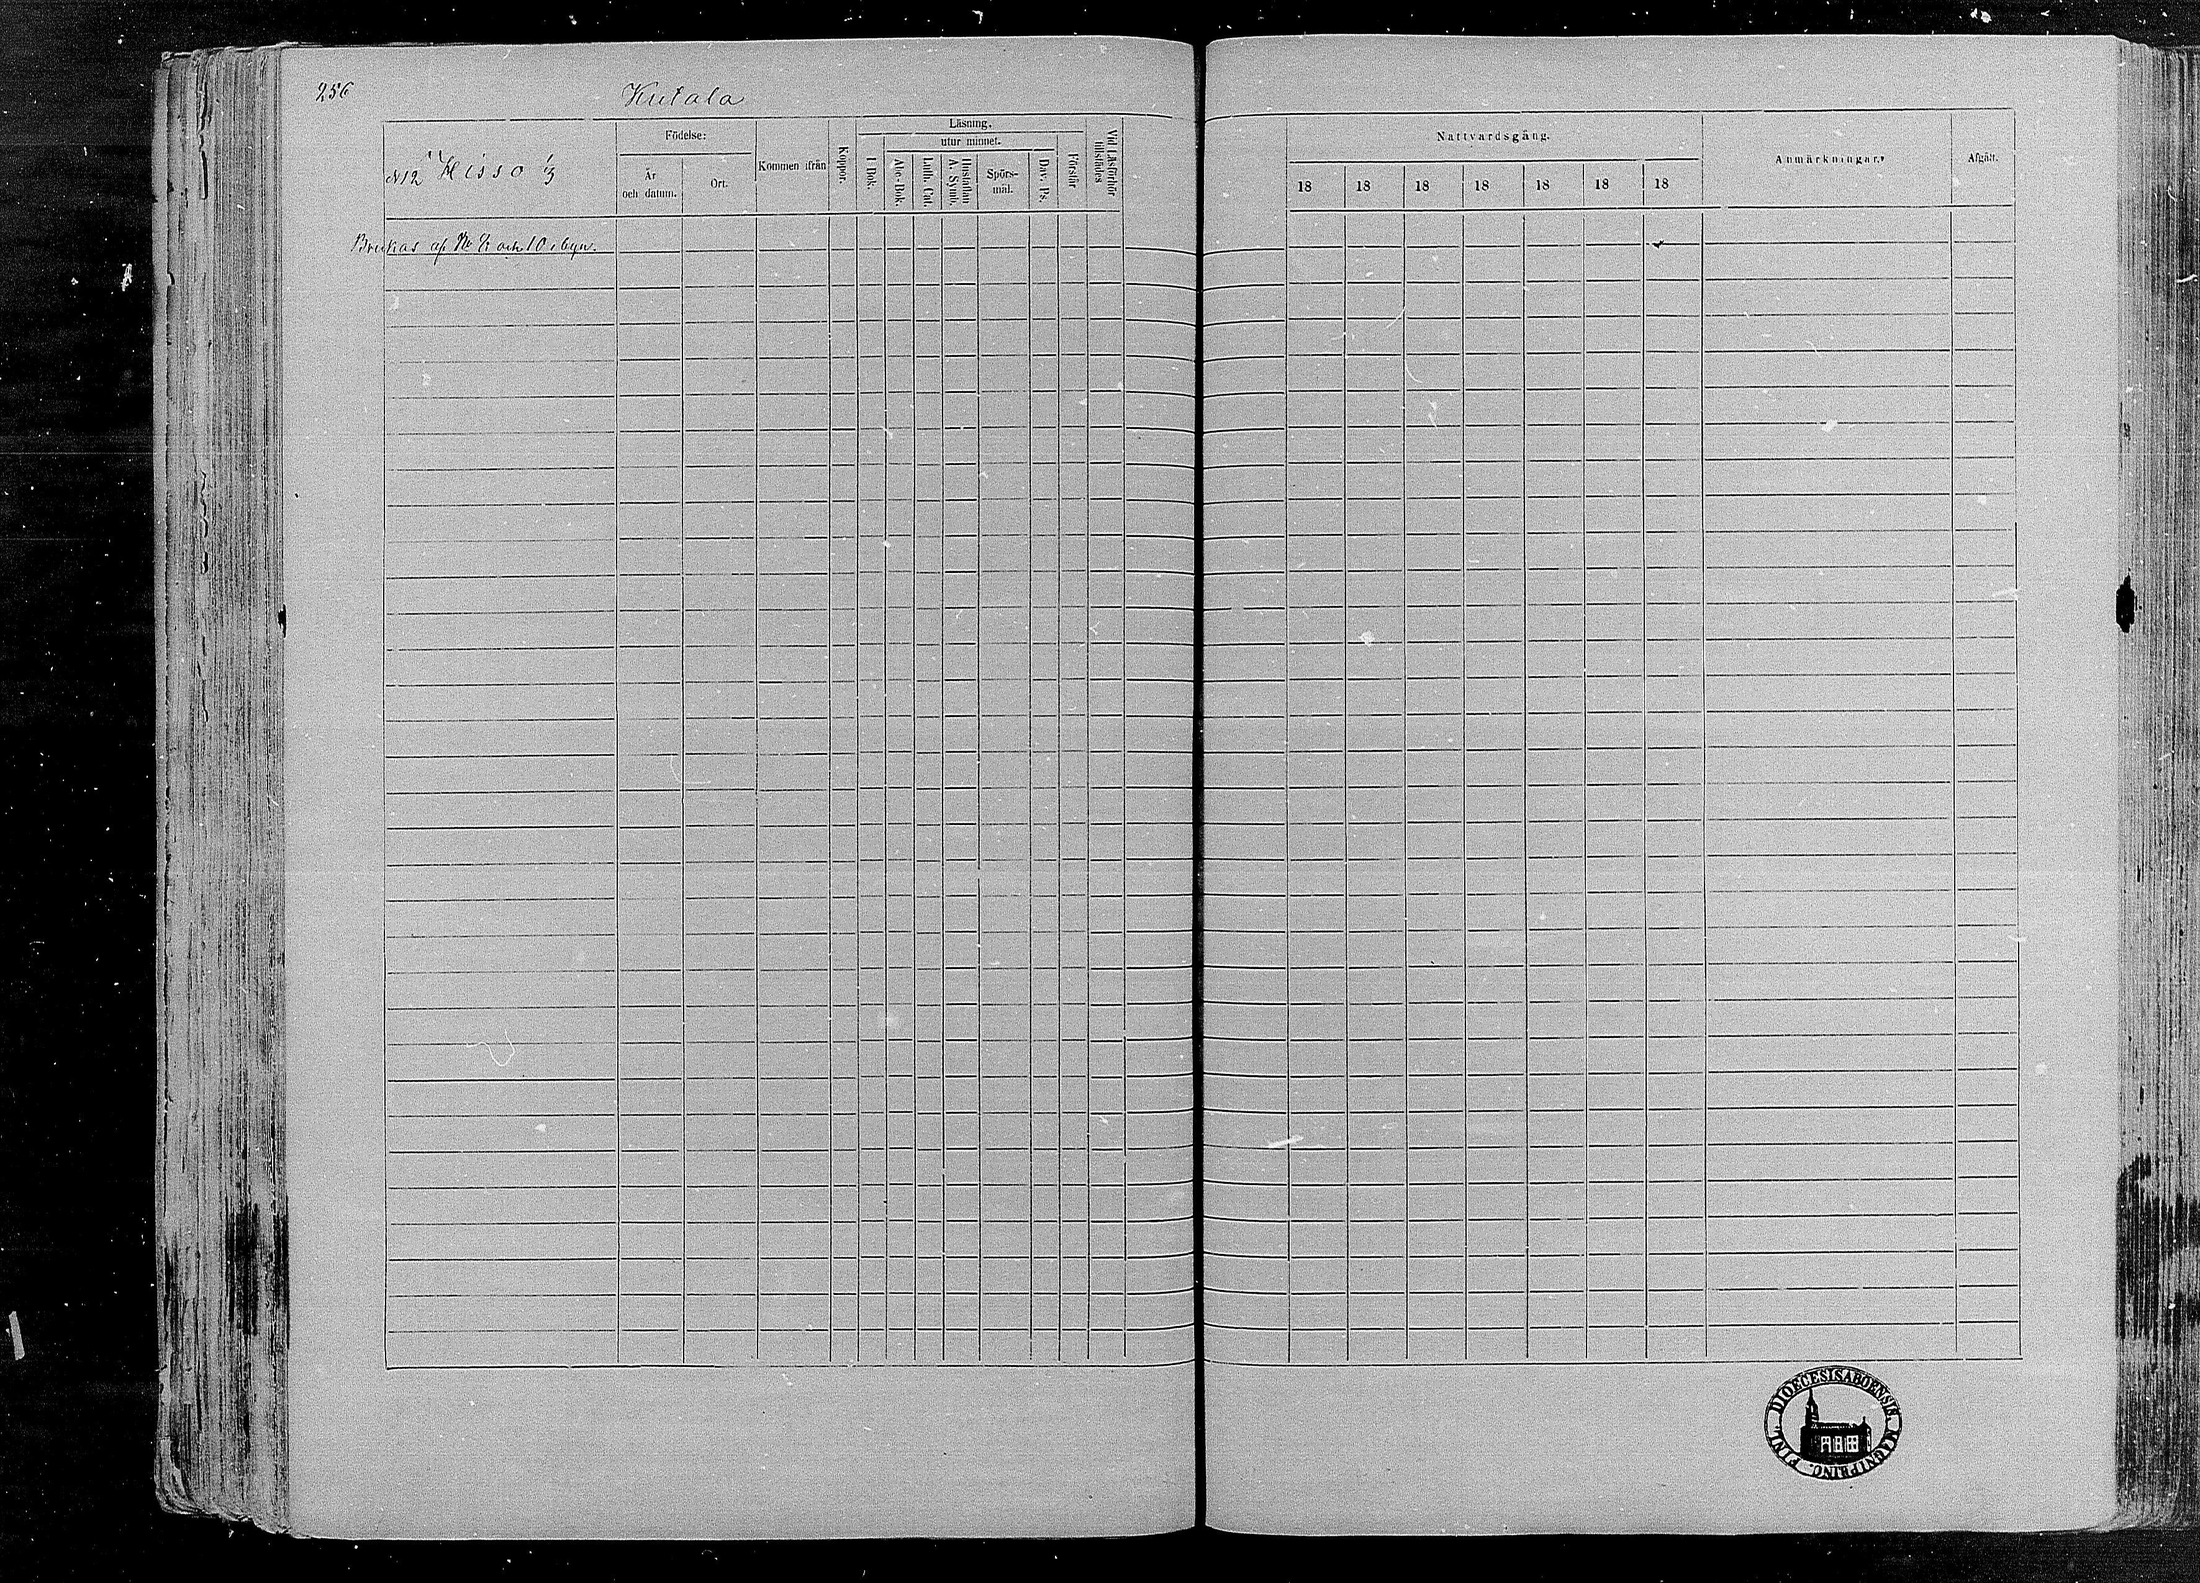 256
Kutala
N12 Hisso 1/3
Födelse:
År
och datum.
Ort.
Kommen ifrån
Koppor.
Läsning.
utur minnet.
I Bok.
Abc-Bok.
Luth. Cat.
Hustaflan
A. Symb.
Spörs-
mål.
Dav. Ps.
Förstår
Vid Läsförhör
tillstädes
Nattvardsgång.
18 18 18 18 18 18 18
Anmärkningar.
Afgått.
Brukas af och 10 i byn.
DIOECESIS ABOENSIS. MAGNI PRINC. FINL.